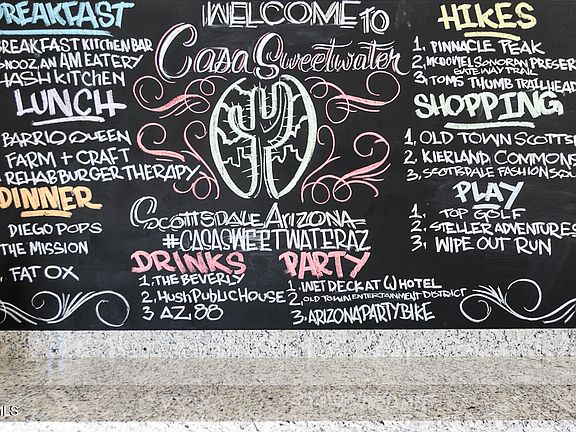 BREAKFAST
BREAKFAST KITCHEN BAR
SNOOZ, AN AM EATERY
HASH KITCHEN
LUNCH
BARRIO QUEEN
FARM + CRAFT
REHAB BURGER THERAPY
DINNER
DIEGO POPS
THE MISSION
FAT OX
WELCOME TO
Casa Sweetwater
Scottsdale Arizona
#CASASWEETWATERAZ
DRINKS
1, THE BEVERLY
2, HUSH PUBLIC HOUSE
3 AZ 88
PARTY
1. WET DECK AT W HOTEL
2. OLD TOWN ENTERTAINMENT DISTRICT
3. ARIZONA PARTY BIKE
HIKES
1. PINNACLE PEAK
2. MCDOWEL SONORAN PRESER
GATE WAY TRAIL
3. TOMS THUMB TRAILHEAD
SHOPPING
1. OLD TOWN SCOTTS
2. KIERLAND COMMONS
3. SCOTTSDALE FASHION SQU
PLAY
1. TOP GOLF
2. STELLER ADVENTURES
3. WIPE OUT RUN